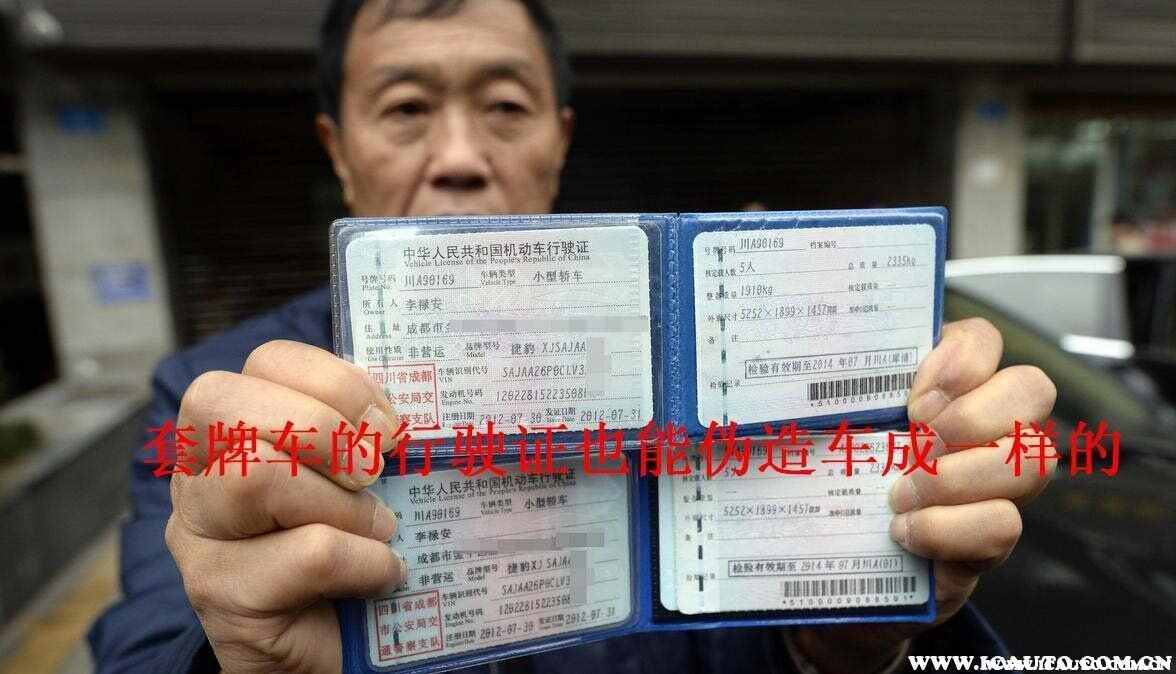 中华人民共和国机动车行驶证
Vehicle License of the People's Republic of China
号牌号码 川A90169 车辆类型 小型轿车
Plate No. Vehicle Type
所有人 李禄安
Owner
住址 成都市
Address
使用性质 非营运 品牌型号 捷豹 XJSAJAA
Use Character Model
四川省成都
市公安局交
通警察支队
车辆识别代号 SAJAA26P0CLV3
VIN
发动机号码 12022815223508
Engine No.
注册日期 2012-07-30 发证日期 2012-07-31
号牌号码 川A90169 档案编号
核定载人数 5人 总质量 2335kg
整备质量 1910kg 核定载质量
外廓尺寸 5252×1899×1457
备注
检验有效期至2014年07月川A
检验记录
套牌车的行驶证也能伪造车成一样的
中华人民共和国机动车行驶证
Vehicle License of the People's Republic of China
川A90169 车辆类型 小型轿车
Vehicle Type
李禄安
成都市
非营运 品牌型号 捷豹 XJ SAJAA
Model
四川省成都
市公安局交
通警察支队
车辆识别代号 SAJAA26P0CLV3
VIN
发动机号码 12022815223508
Engine No.
注册日期 2012-07-30 发证日期 2012-07-31
核定载质量
5252×1899×1457
检验有效期至2014年07月川A(01)
*5100009088501*
WWW.JCAUTO.COM.CN